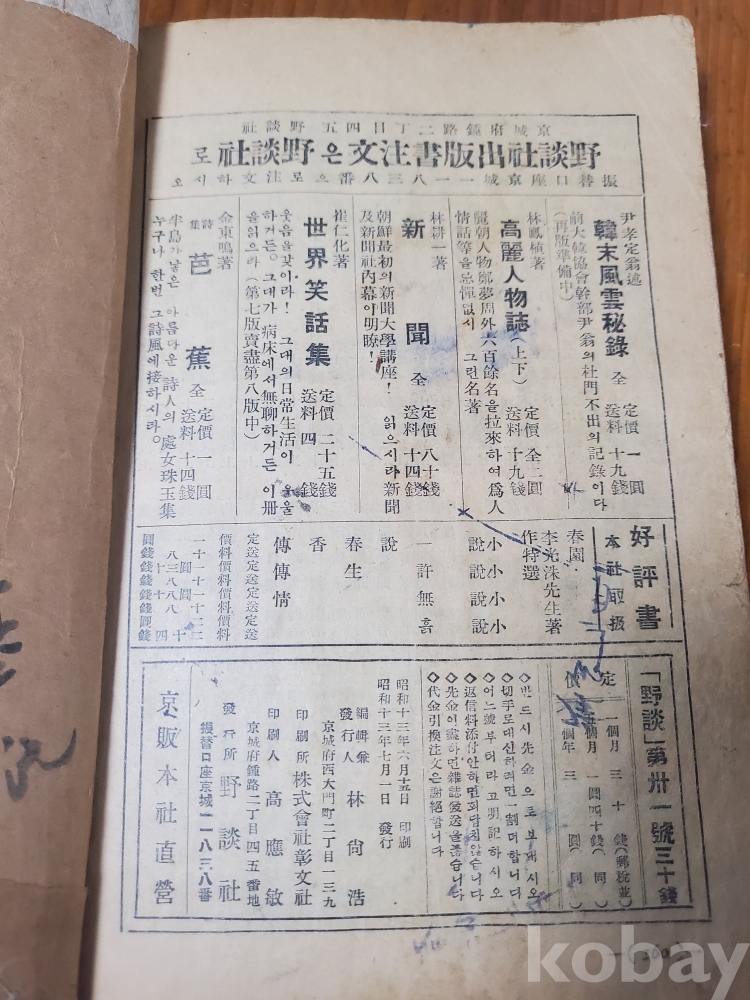 京城府鍾路二丁目四五 野談社
野談社出版書注文은野談社로
振替口座京城一一八三八番으로注文하시오
尹孝定翁述
韓末風雲秘錄 全 定價 一圓 送料 十九錢
前大韓協會幹部尹翁의杜門不出의記錄이다
(再版準備中)
林鳳植著
高麗人物誌(上下) 定價 全二圓 送料 十九錢
麗朝人物鄭夢周外六百餘名을拉來하여爲人
情話等을忌憚없시 그린名著
林耕一著
新聞 全 定價 八十錢 送料 十四錢
朝鮮最初의新聞大學講座! 읽으시라新聞
及新聞社內幕이明瞭!
崔仁化著
世界笑話集 定價 二十五錢 送料 四錢
웃음을찾이라! 그대의日常生活이 우울
하거든. 그대가 病床에서無聊하거든 이册
을읽으라(第七版賣盡第八版中)
金東鳴著
詩集 芭蕉 全 定價 一圓 送料 十四錢
半島가낳은 아름다운 詩人의 處女珠玉集
누구나 한번 그詩風에接하시라。
好評書
本社取扱
春園
李光洙先生著
作特選
小說 小說 小說 小說
一說 許生傳 無情
春香傳
定價
送料
「野談」第卅一號三十錢
定價
一個月 三十錢(郵稅並)
一圓四十錢(同)
個年 三圓(同)
◇반드시先金으로보내시오
◇切手로대신하려면一割더합니다
◇어느號부터라고明記하시오
◇返信料添付안하면回답치안습니다
◇先金이盡하면雜誌發送을中止합니다
◇代金引換注文은謝絕합니다
昭和十三年六月十五日 印刷
昭和十三年七月一日 發行
編輯兼發行人 林尙浩
京城府西大門町二丁目一三九
印刷所 株式會社彰文社
印刷人 高應敏
京城府鍾路二丁目四五番地
發行所 野談社
振替口座京城一一八三八番
京販本社直營
kobay